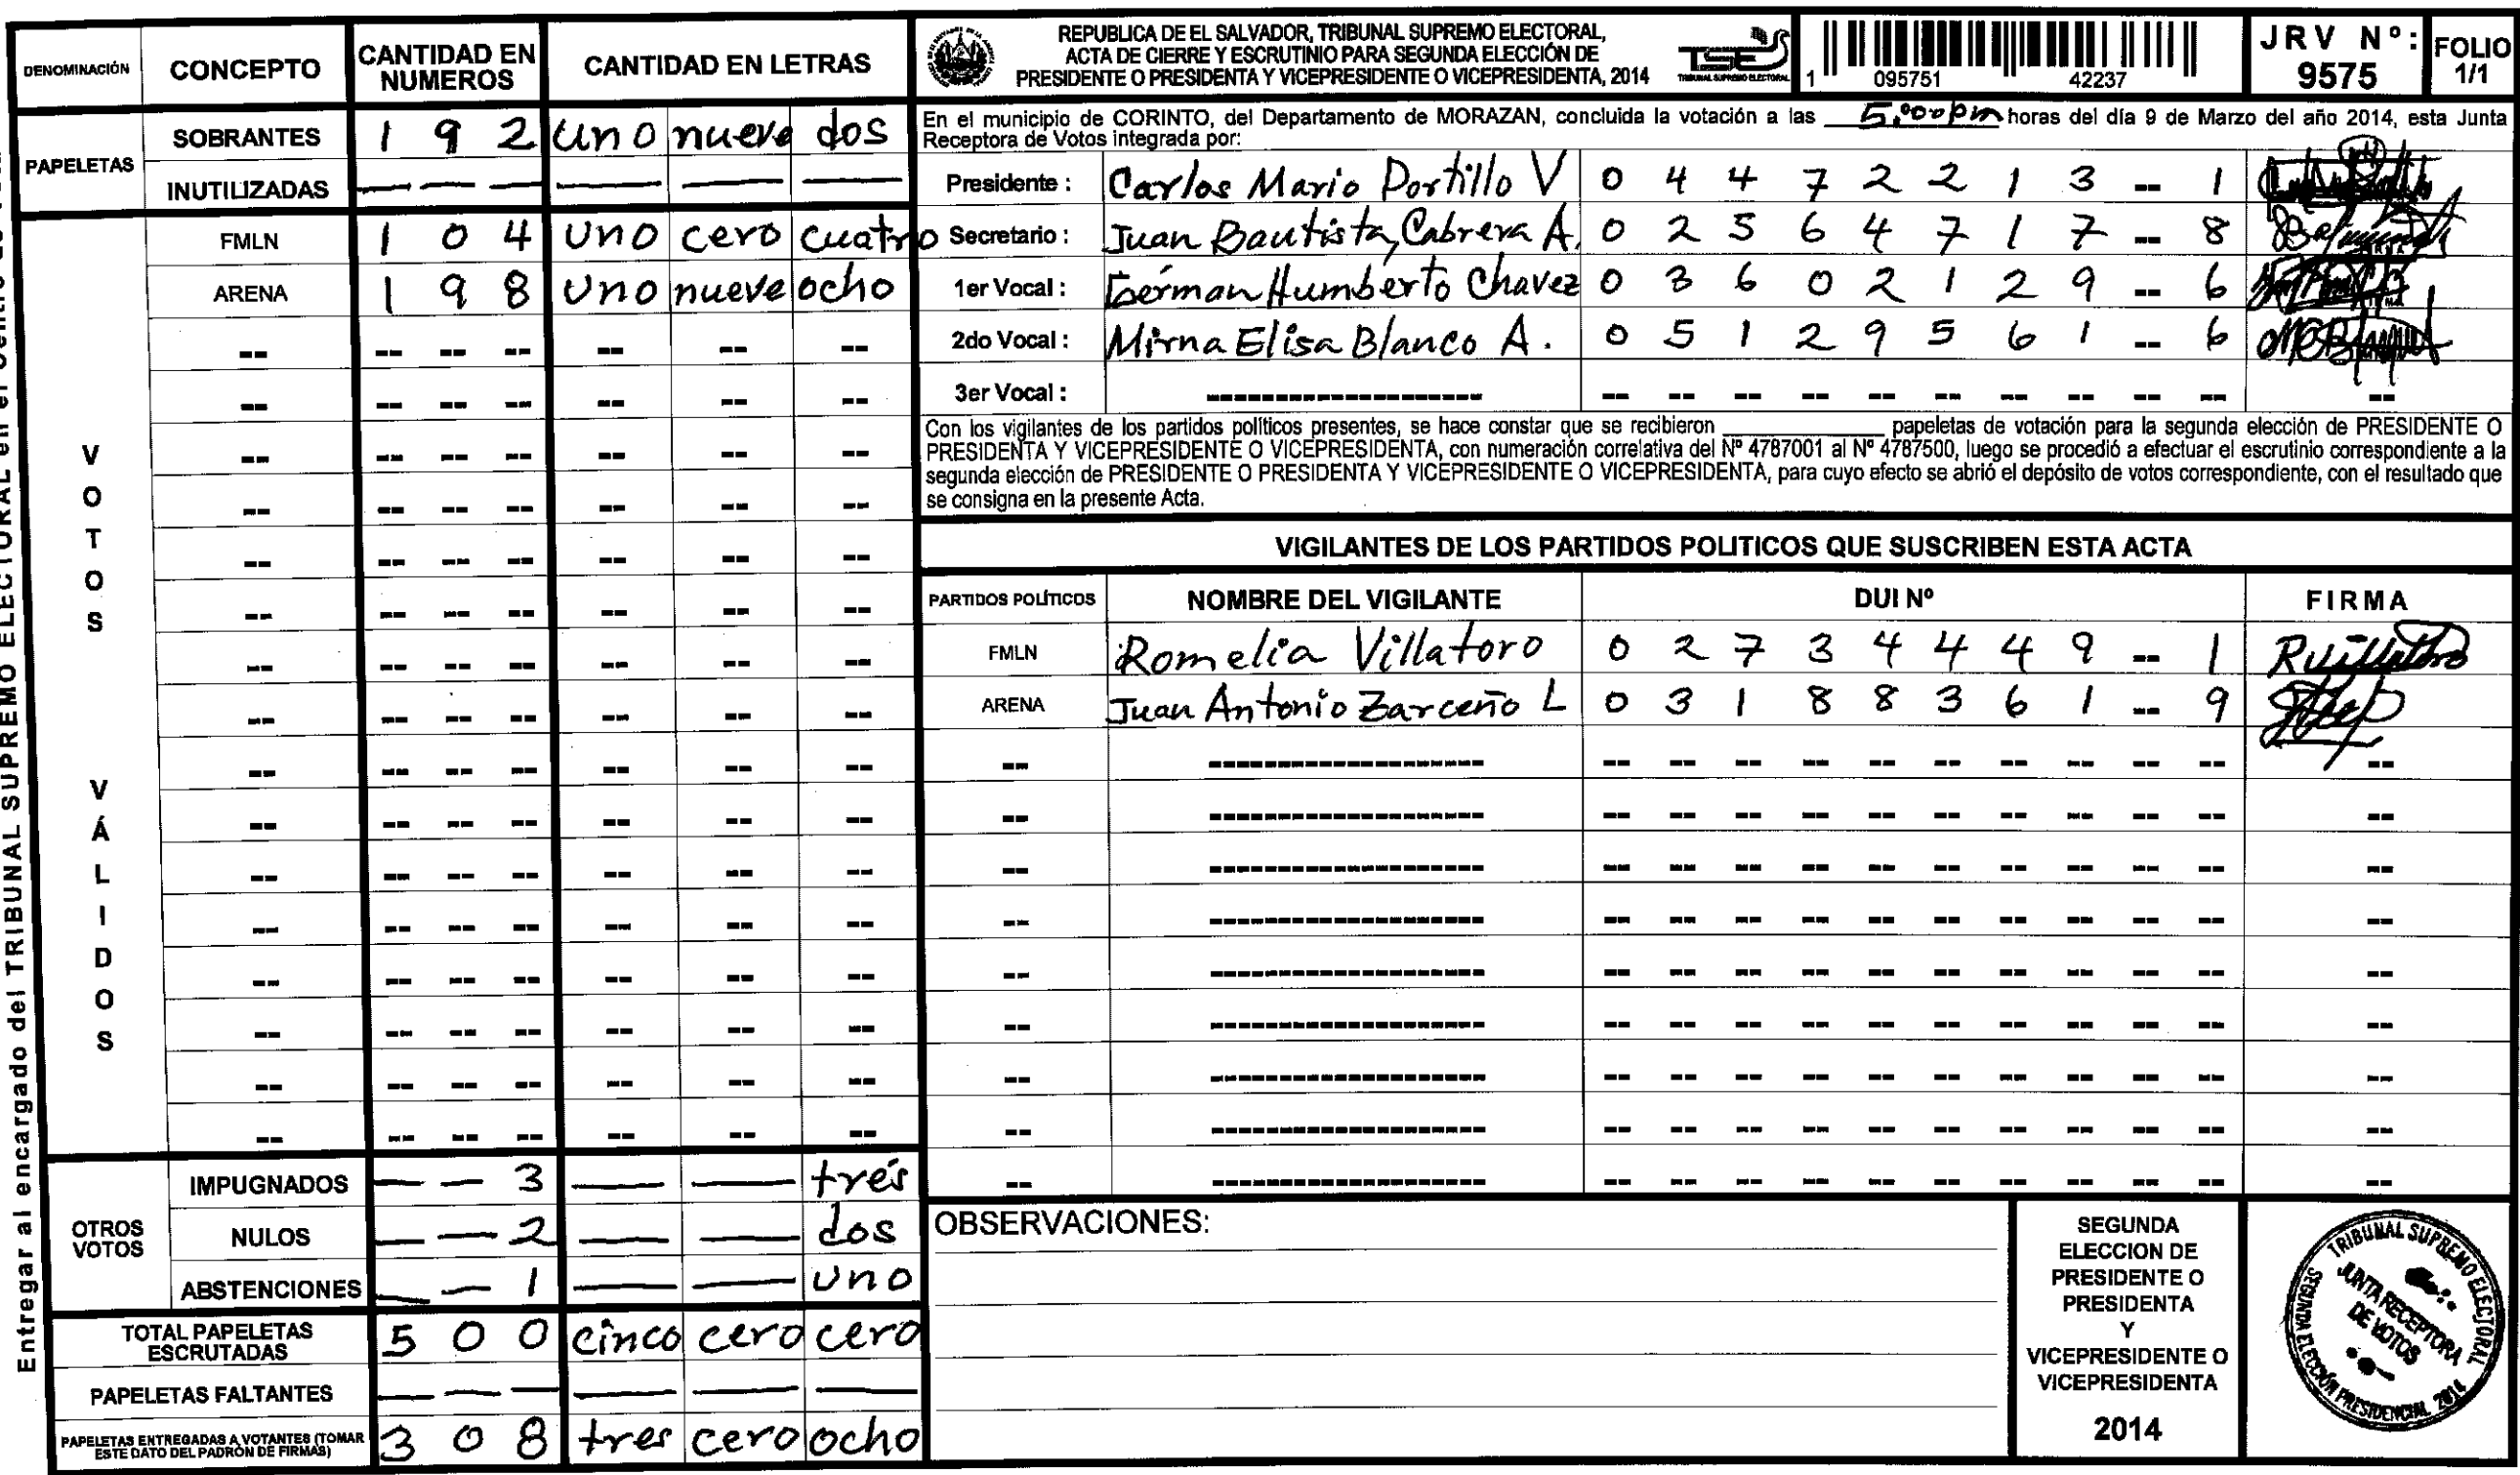 Entregar al encargado del TRIBUNAL SUPREMO ELECTORAL en el Centro de
DENOMINACIÓN CONCEPTO CANTIDAD EN NUMEROS CANTIDAD EN LETRAS
PAPELETAS
SOBRANTES 1 9 2 uno nueve dos
INUTILIZADAS — — — — — —
VOTOS VÁLIDOS
FMLN 1 0 4 uno cero cuatro
ARENA 1 9 8 uno nueve ocho
OTROS VOTOS
IMPUGNADOS — — 3 — — trés
NULOS — — 2 — — dos
ABSTENCIONES — — 1 — — uno
TOTAL PAPELETAS ESCRUTADAS 5 0 0 cinco cero cero
PAPELETAS FALTANTES — — — — — —
PAPELETAS ENTREGADAS A VOTANTES (TOMAR ESTE DATO DEL PADRÓN DE FIRMAS) 3 0 8 tres cero ocho
REPUBLICA DE EL SALVADOR, TRIBUNAL SUPREMO ELECTORAL,
ACTA DE CIERRE Y ESCRUTINIO PARA SEGUNDA ELECCIÓN DE
PRESIDENTE O PRESIDENTA Y VICEPRESIDENTE O VICEPRESIDENTA, 2014
TSE
TRIBUNAL SUPREMO ELECTORAL
1 095751 42237
JRV Nº: 9575
FOLIO 1/1
En el municipio de CORINTO, del Departamento de MORAZAN, concluida la votación a las 5:00 pm horas del día 9 de Marzo del año 2014, esta Junta
Receptora de Votos integrada por:
Presidente : Carlos Mario Portillo V 0 4 4 7 2 2 1 3 -- 1
Secretario : Juan Bautista Cabrera A. 0 2 5 6 4 7 1 7 -- 8
1er Vocal : Germán Humberto Chavez 0 3 6 0 2 1 2 9 -- 6
2do Vocal : Mirna Elisa Blanco A. 0 5 1 2 9 5 6 1 -- 6
3er Vocal : ------------------ -- -- -- -- -- -- -- -- -- -- --
Con los vigilantes de los partidos políticos presentes, se hace constar que se recibieron ____________ papeletas de votación para la segunda elección de PRESIDENTE O
PRESIDENTA Y VICEPRESIDENTE O VICEPRESIDENTA, con numeración correlativa del Nº 4787001 al Nº 4787500, luego se procedió a efectuar el escrutinio correspondiente a la
segunda elección de PRESIDENTE O PRESIDENTA Y VICEPRESIDENTE O VICEPRESIDENTA, para cuyo efecto se abrió el depósito de votos correspondiente, con el resultado que
se consigna en la presente Acta.
VIGILANTES DE LOS PARTIDOS POLITICOS QUE SUSCRIBEN ESTA ACTA
PARTIDOS POLÍTICOS NOMBRE DEL VIGILANTE DUI Nº FIRMA
FMLN Romelia Villatoro 0 2 7 3 4 4 4 9 -- 1 RVillatoro
ARENA Juan Antonio Zarceño L 0 3 1 8 8 3 6 1 -- 9
OBSERVACIONES:
SEGUNDA
ELECCION DE
PRESIDENTE O
PRESIDENTA
Y
VICEPRESIDENTE O
VICEPRESIDENTA
2014
TRIBUNAL SUPREMO ELECTORAL
JUNTA RECEPTORA
DE VOTOS
SEGUNDA ELECCIÓN PRESIDENCIAL 2014